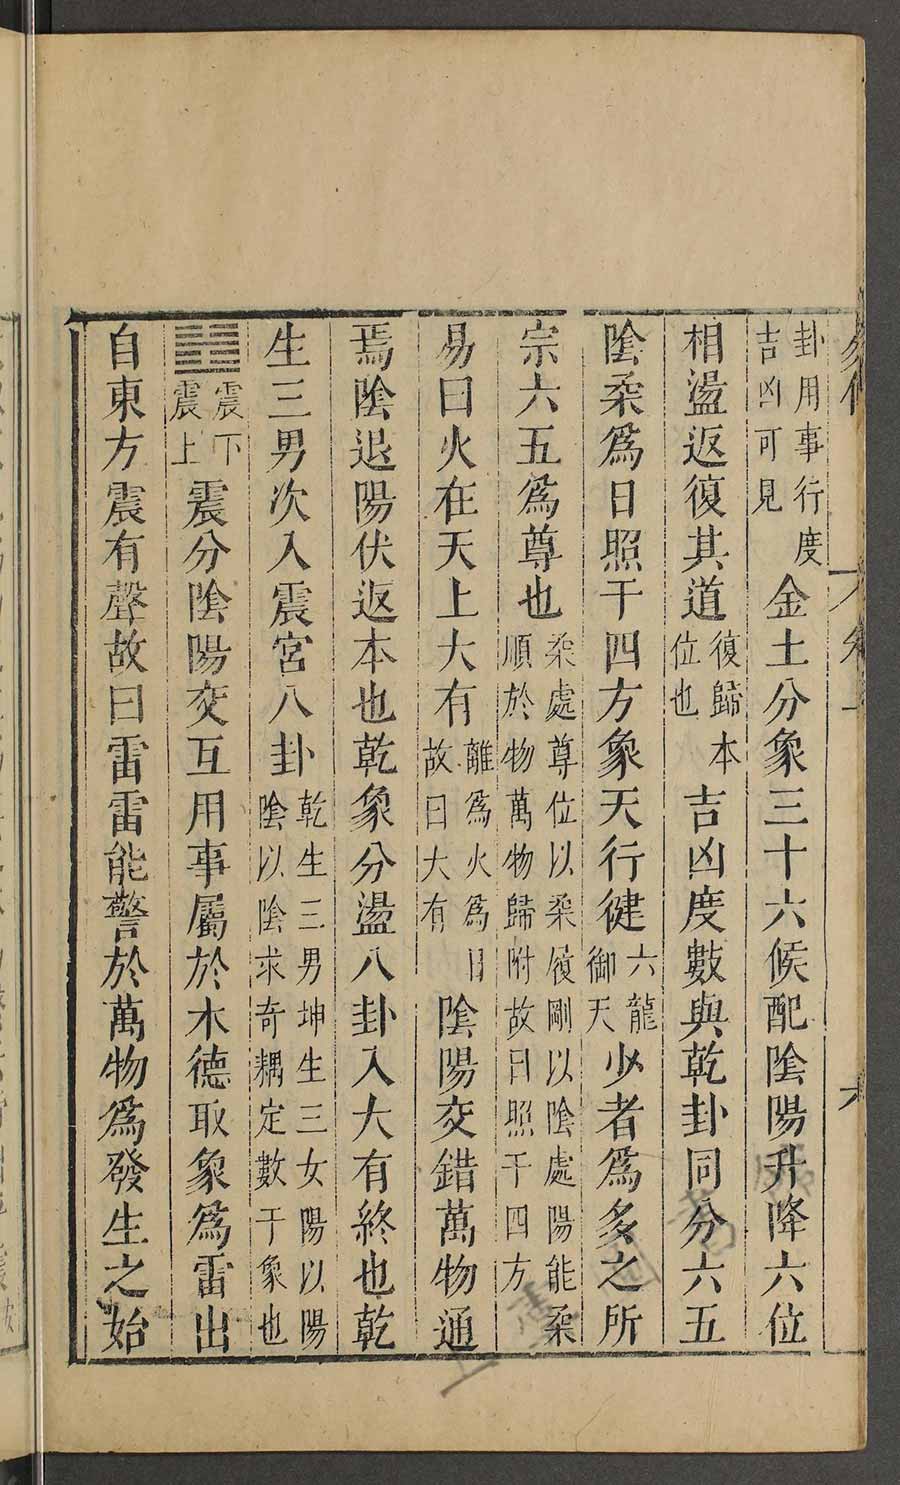 卦用事行度吉凶可見金土分象三十六候配陰陽升降六位
相盪返復其道復歸本位也吉凶度數與乾卦同分六五
陰柔爲日照于四方象天行健六龍御天少者爲多之所
宗六五爲尊也柔處尊位以柔履剛以陰處陽能柔順於物萬物歸附故日照于四方
易曰火在天上大有離爲火爲日故曰大有陰陽交錯萬物通
焉陰退陽伏返本也乾象分盪八卦入大有終也乾
生三男次入震宮八卦乾生三男坤生三女陽以陽陰以陰求奇耦定數于象也
䷲震下震上震分陰陽交互用事屬於木德取象爲雷出
自東方震有聲故曰雷雷能警於萬物爲發生之始